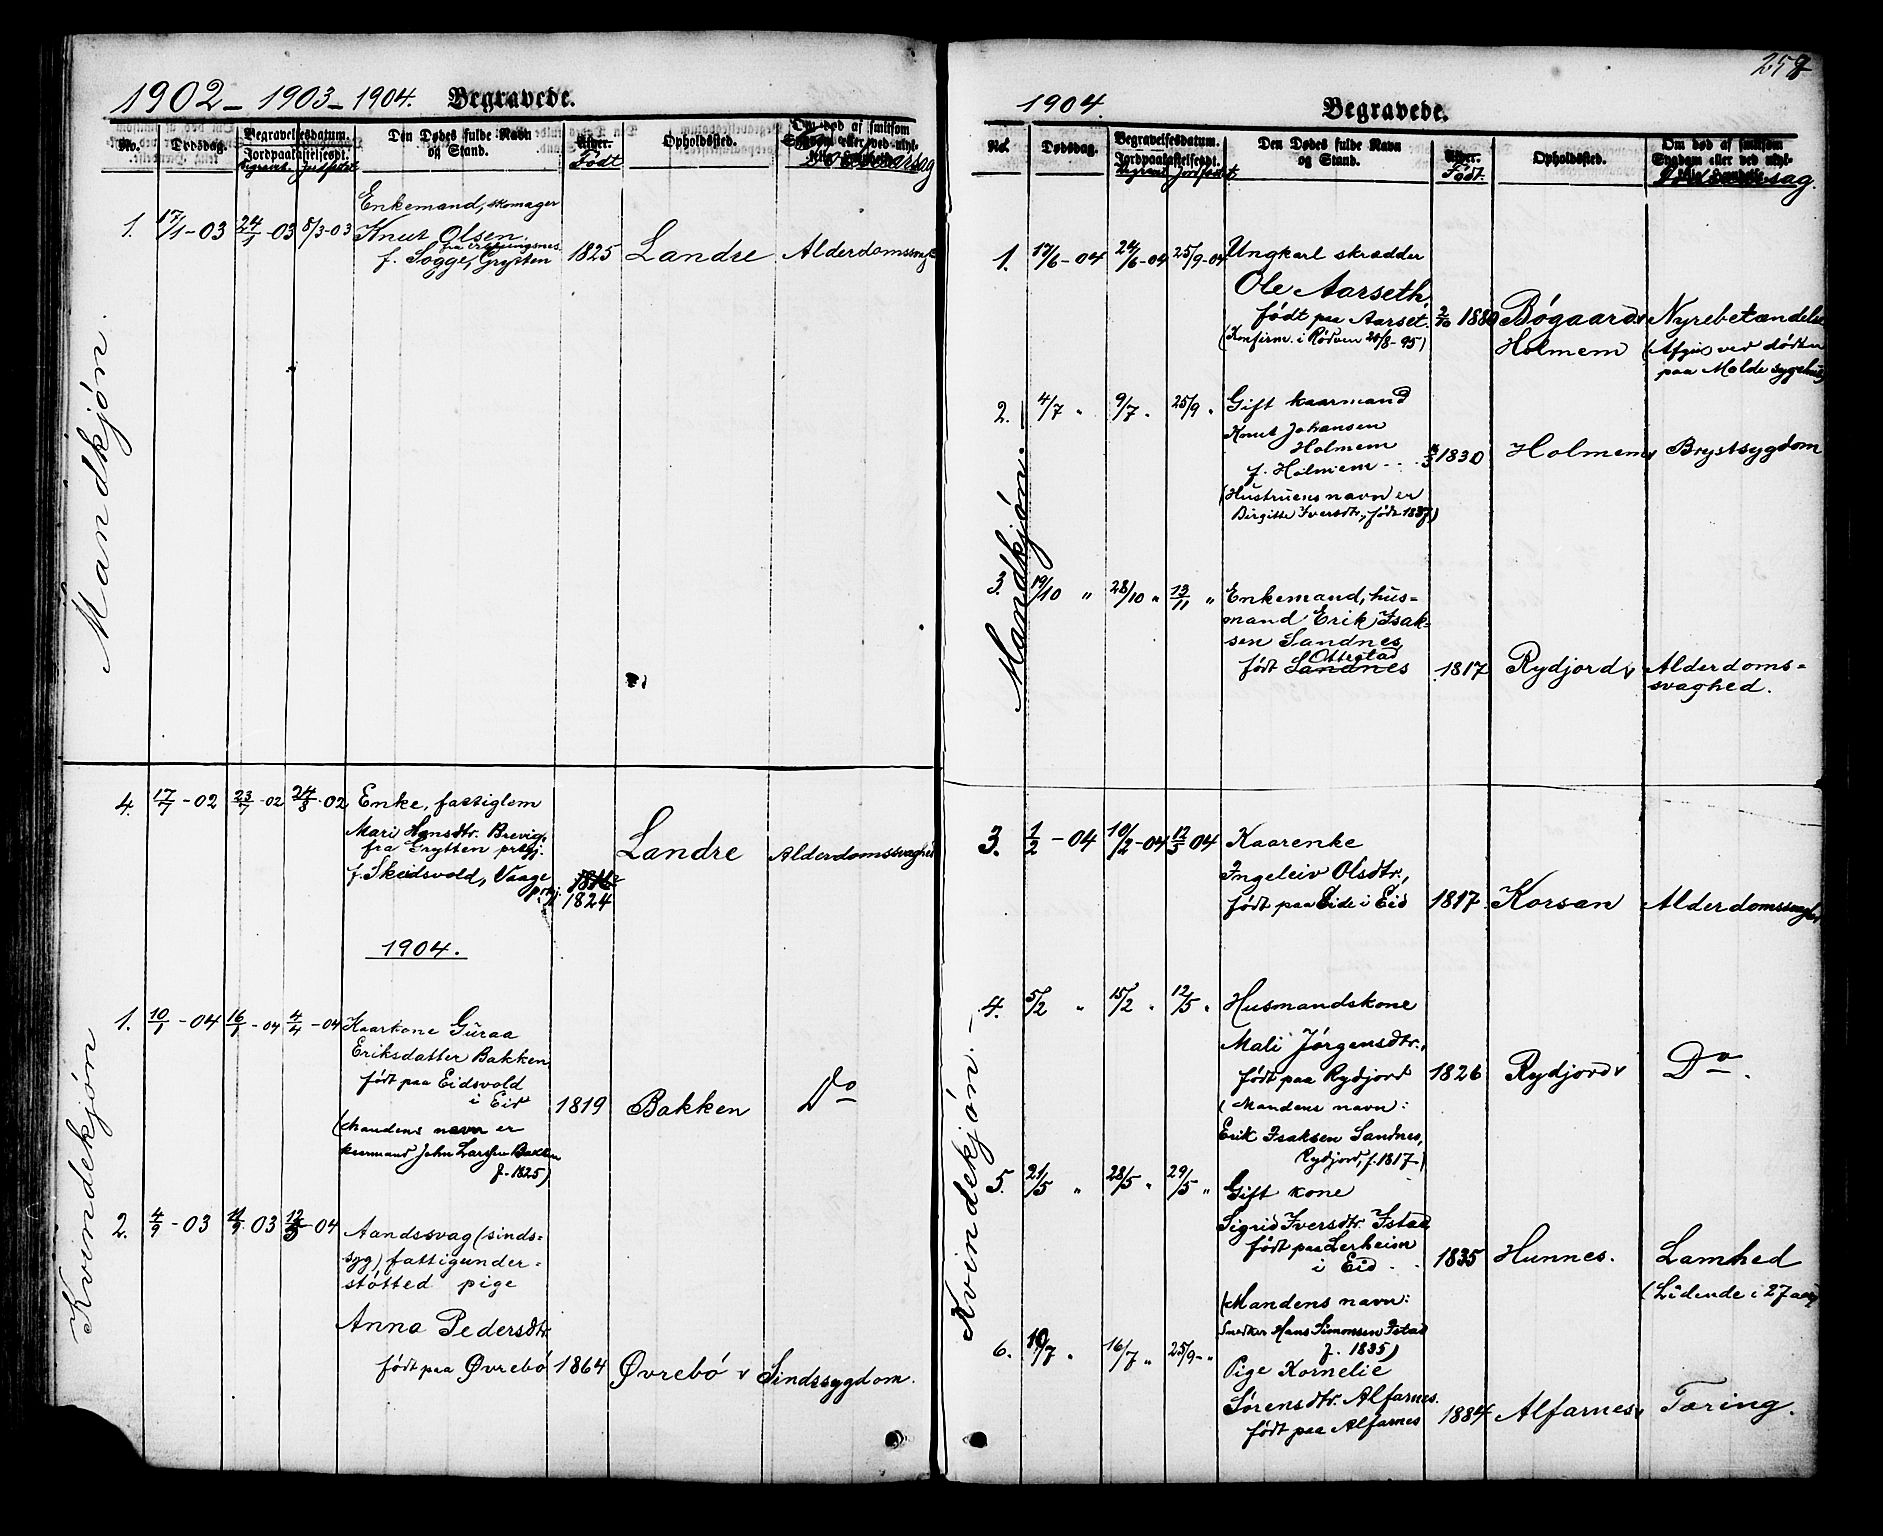 1902 - 1903 - 1904. Begravede.
No. Dødsdag. Begravelsesdatum. Jordpaakastelsesdt. Den Dødes fulde Navn og Stand. Alder. Født Opholdssted.
Mandkjøn.
Enkemand, skomager
1. 17/1-03 24/1-03 8/3-03 Knut Olsen
f. Sogge, Grytten 1825 Landre
4. 17/7-02 23/7-02 24/8-02 Enke, fattiglem
Mari Hansdtr. Brevig,
fra Grytten prgj. Landre Alderdomssvaghed
f. Skeidsvold, Vaage
prgj. 1824
1904.
Kvindekjøn
1. 10/1-04 16/1-04 4/4-04 Kaarkone Guraa
Eriksdatter Bakken
født paa Eidsvold
i Eid 1819 Bakken Do
(Mandens navn er
kaarmand John Larssen Bakken
f. 1825)
2. 4/9-03 11/9 03 12/5-04 Aandssvag (sinds-
syg) fattigunder-
støtted pige
Anna Pedersdtr.
født paa Øvrebø 1864 Øvrebø v Sindssygdom.
1904. Begravede.
No. Dødsdag. Begravelsesdatum. Jordpaakastelsesdt. Den Dødes fulde Navn og Stand. Alder. Født. Opholdsted. Om død af smitsom Sygdom eller ved ulyk-
Mandkjøn.
1. 17/6-04 24/6-04 25/9-04 Ungkarl skrædder
Ole Aarseth,
født paa Aarset. Bøgaard Nyrebetændelse
(Konfirm. i Rødven 20/8-95) Holmem (Afgik ved døden
paa Molde sygehus)
2. 4/7 " 9/7 " 25/9 " Gift kaarmand
Knut Johansen
Holmem
f. Holmem 1830 Holmem v Brystsygdom
(Hustruens navn er
Birgitte Iversdtr., født 1837)
3. 19/10 " 28/10 " 13/11 " Enkemand, hus-
mand Erik Isak-
sen Sandnes
Otterstad
født Sandnes 1817 Rydjord v Alderdoms-
svaghed.
Kvindekjøn.
3. 1/2-04 10/2-04 12/5 04 Kaarenke
Ingeleiv Olsdtr.,
født paa Eide i Eid 1817 Korsan
4. 5/2 " 15/2 " 12/5 " Husmandskone
Mali Jørgensdtr.,
født paa Rydjord 1826 Rydjord v Do.
(Mandens navn:
Erik Isaksen Sandnes,
Rydjord, f. 1817)
5. 21/5 " 28/5 " 29/5 " Gift kone
Sigrid Iversdtr. Istad
født paa Lerheim
i Eid. 1835 Hunnes. Lamhed
(Lidende i 27 aar)
(Mandens navn:
Snedker Hans Simonsen Istad
f. 1835)
6. 10/7 " 16/7 " 25/9 - " Pige Kornelie
Sørensdtr. Alfarnes.
født paa Alfarnes 1884 Alfarnes v Tæring.